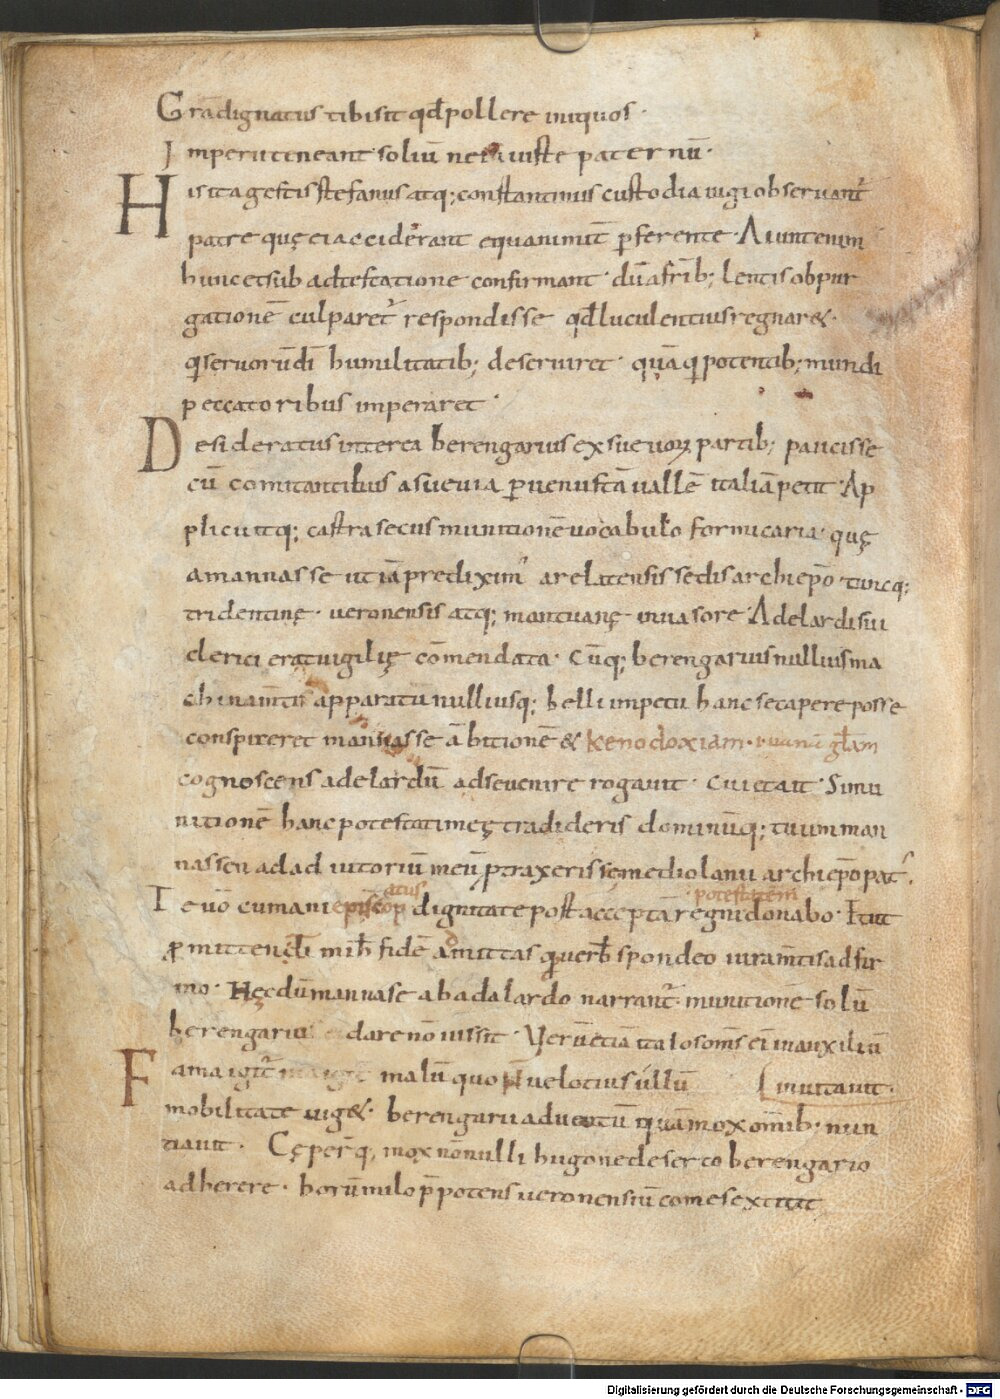 Gradignatus tibi sit qđ pollere iniquos ·
Imperii teneant soliū neq iuste paternū ·
His ita gestis stefanus atq; constantinus custodia uigi obseruant̄
patre quę ei acciderant equanimit̄ p̄ferente · Aiunt enim
hunc et sub adtestatione confirmant · dū a frīb; lentis ob pur
gationē culparet̄ respondisse qđ luculentius regnar& ·
q seruorū dī humilitatib; deseruiret · quā q potentib; mundi
peccatoribus imperaret ·
Desideratus interea berengarius ex sueuoꝝ partib; paucis se
cū comitantibus a sueuia p uenustā uallē italiā petit · Ap
plicuitq; castra secus munitionē uocabulo formicaria · quę
a mannasse ut iā predixim᾽ arelatensis sedis archiepo tuncq;
tridentinę · ueronensis atq; mantuanę inuasore · Adelardi sui
clerici erat uigilię cōmendata · Cūq; berengarius nullius ma
chinam̄ti apparatū nulliusq; belli impetu hanc se capere posse
conspiceret mannasse ābitionē & kenodoxiam · uanā gl̄am
cognoscens adelardū ad se uenire rogauit · cui et ait · Si mu
nitionē hanc potestati meę tradideris dominūq; tuum man
nassen ad adiutoriū meū ptraxeris se mediolanii archiepo pat᾽ ·
Te uōo cumani episcopatus dignitate post acceptā regni potestatem donabo · Et ut
p mittendi mihi fidē āmittas q uerb spondeo iuram̄tis adfir
mo · Hęc dū mannase ab adalardo narrant̄ · munitionē solū
berengario dare nō iussit · Verū etiā italos om̄s ei in auxiliū
inuitauit ·
Fama igit̄ malū quo n̄ uelocius ullū
mobilitate uig& · berengarii aduentū quā mox om̄ib; nun
tiauit · Cęperq̄, mox nōnulli hugone deserto berengario
adherere · horū milo p̄potens ueronensiū comes extitit
Digitalisierung gefördert durch die Deutsche Forschungsgemeinschaft - DFG